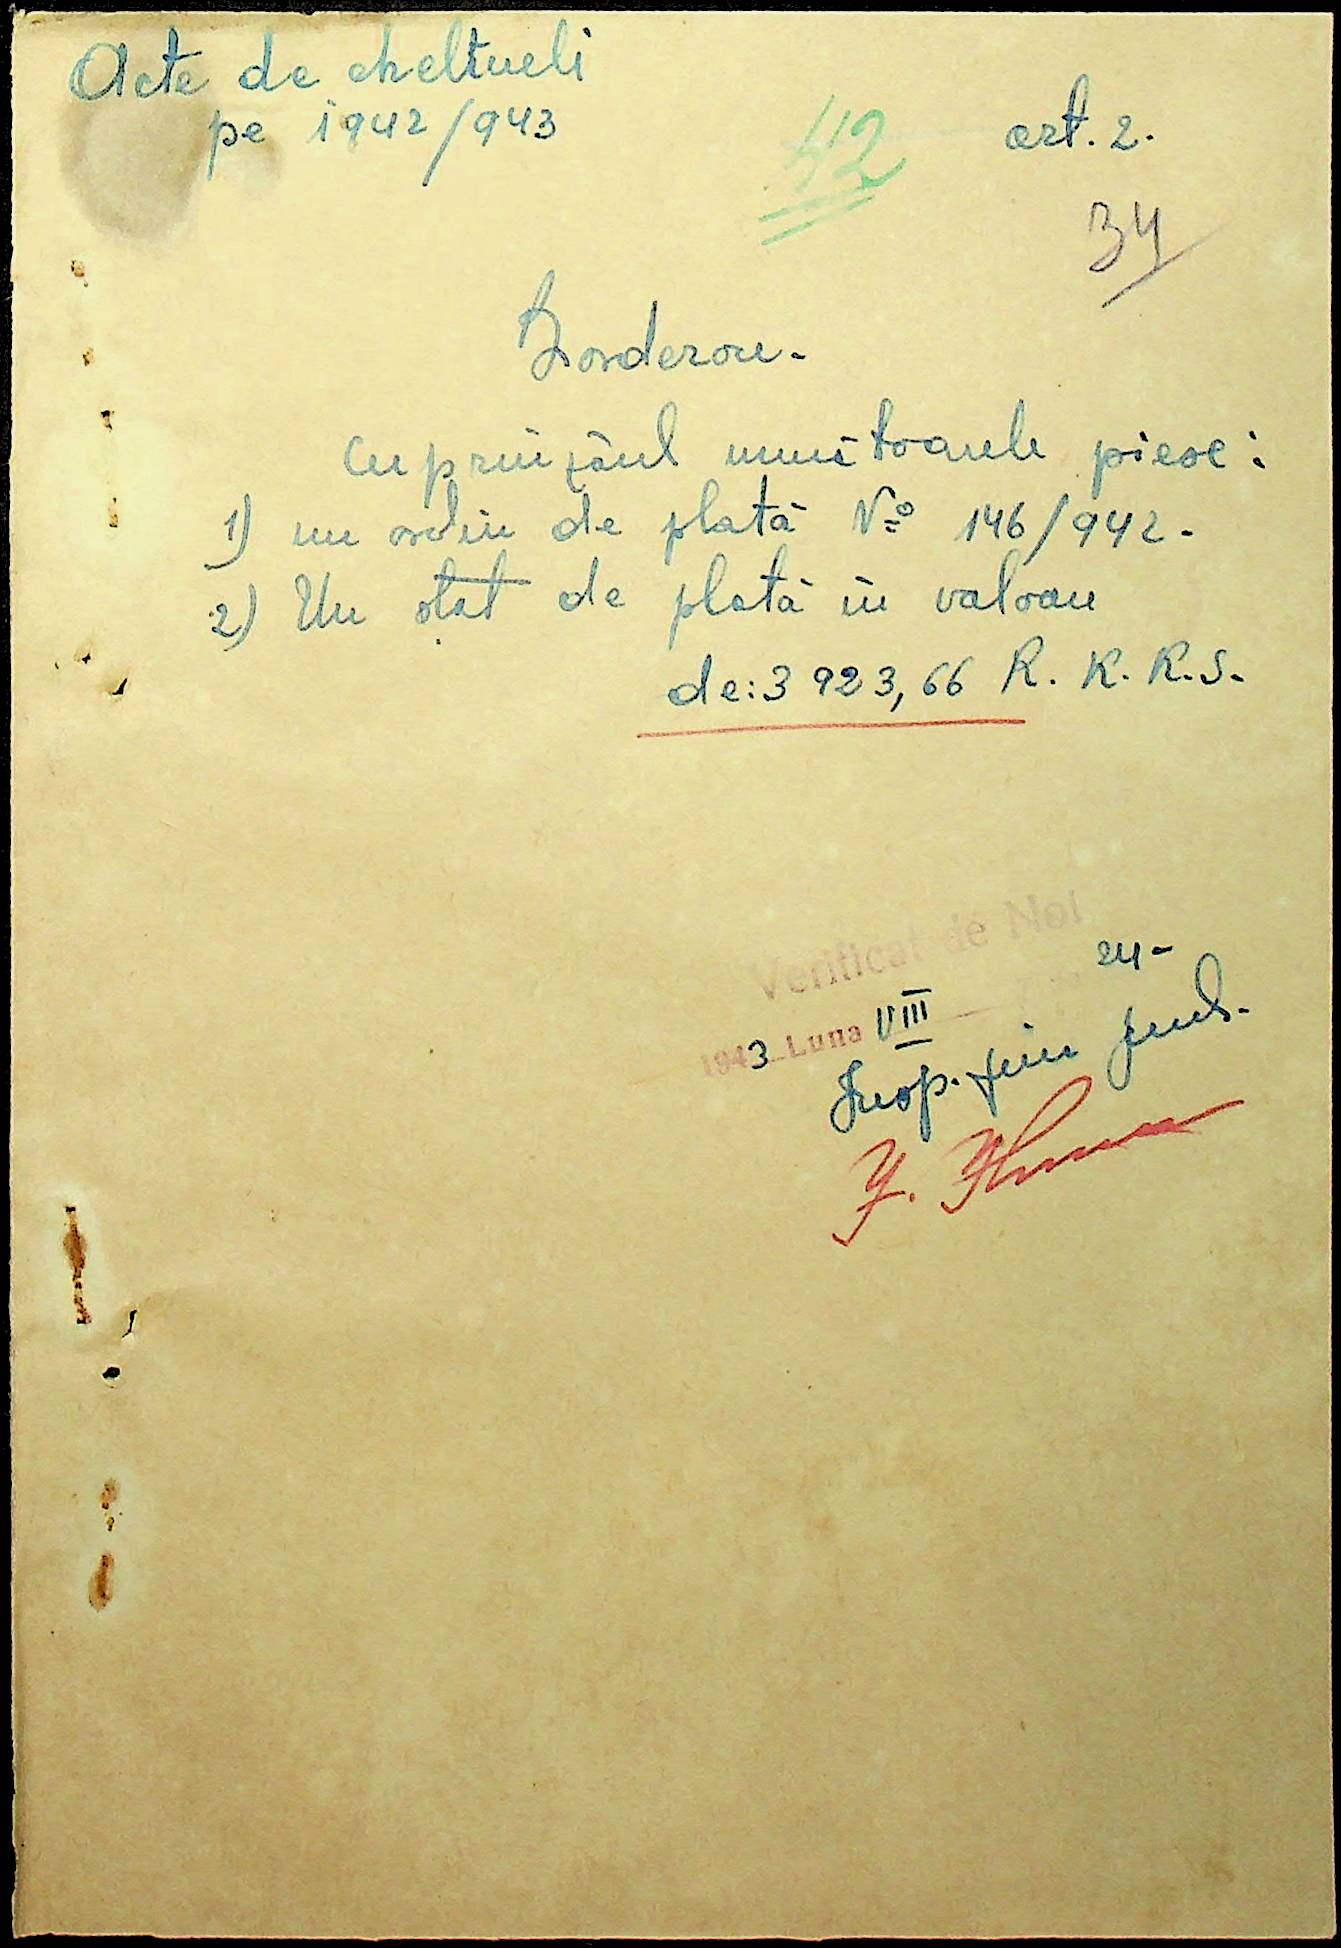 Acte de cheltueli
pe 1942/943
42
art. 2.
34
Borderou.
Cuprinzând următoarele piese:
1) un ordin de plată No 146/942.
2) Un stat de plată în valoare
de: 3 923,66 R. K. K. S.
Verificat de Noi
24-
1943 Luna VIII
Insp. fin Jud.